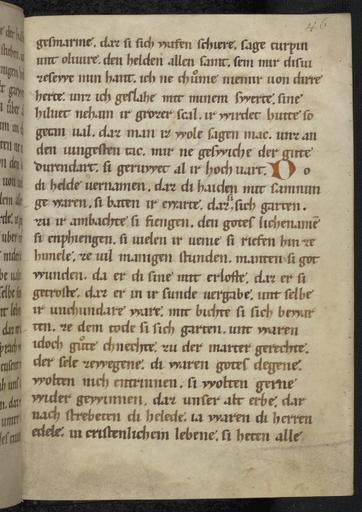 46
gesmarine. daz si sich wafen schiere. sage turpin
unt oliuire. den helden allen samt. sem mir disiu
zesewe min hant. ich ne chůme niemir uon dirre
herte. unz ich geslahe mit minem swerte. sine
hilfet nehain ir grozer scal. ir wirdet hiute so
getan ual. daz man iz wole sagen mac. unz an
den iungesten tac. mir ne geswiche der gůte
durendart. si geriwet al ir hochuart. Do
di helde uernamen. daz di haiden mit samnun
ge waren. si baten ir ewarte. daz si sich garten.
zu ir ambachte si fiengen. den gotes lichenamē
si enphiengen. si uielen ir uenie si riefen hin ze
himele. ze uil manigen stunden. manten si got
wunden. da er di sine mit erloste. daz er si
getroste. daz er in ir sunde uergabe. unt selbe
ir urchunde ware. mit bichte si sich bewar
ten. ze dem tode si sich garten. unt waren
idoch gůte chnechte. zu der marter gerechte.
der sele zewegene. di waren gotes degene.
wolten nich entrinnen. si wolten gerne
wider gewinnen. daz unser alt erbe. dar
nach strebeten di helede. ia waren di herren
edele. in cristenlichem lebene. si heten alle